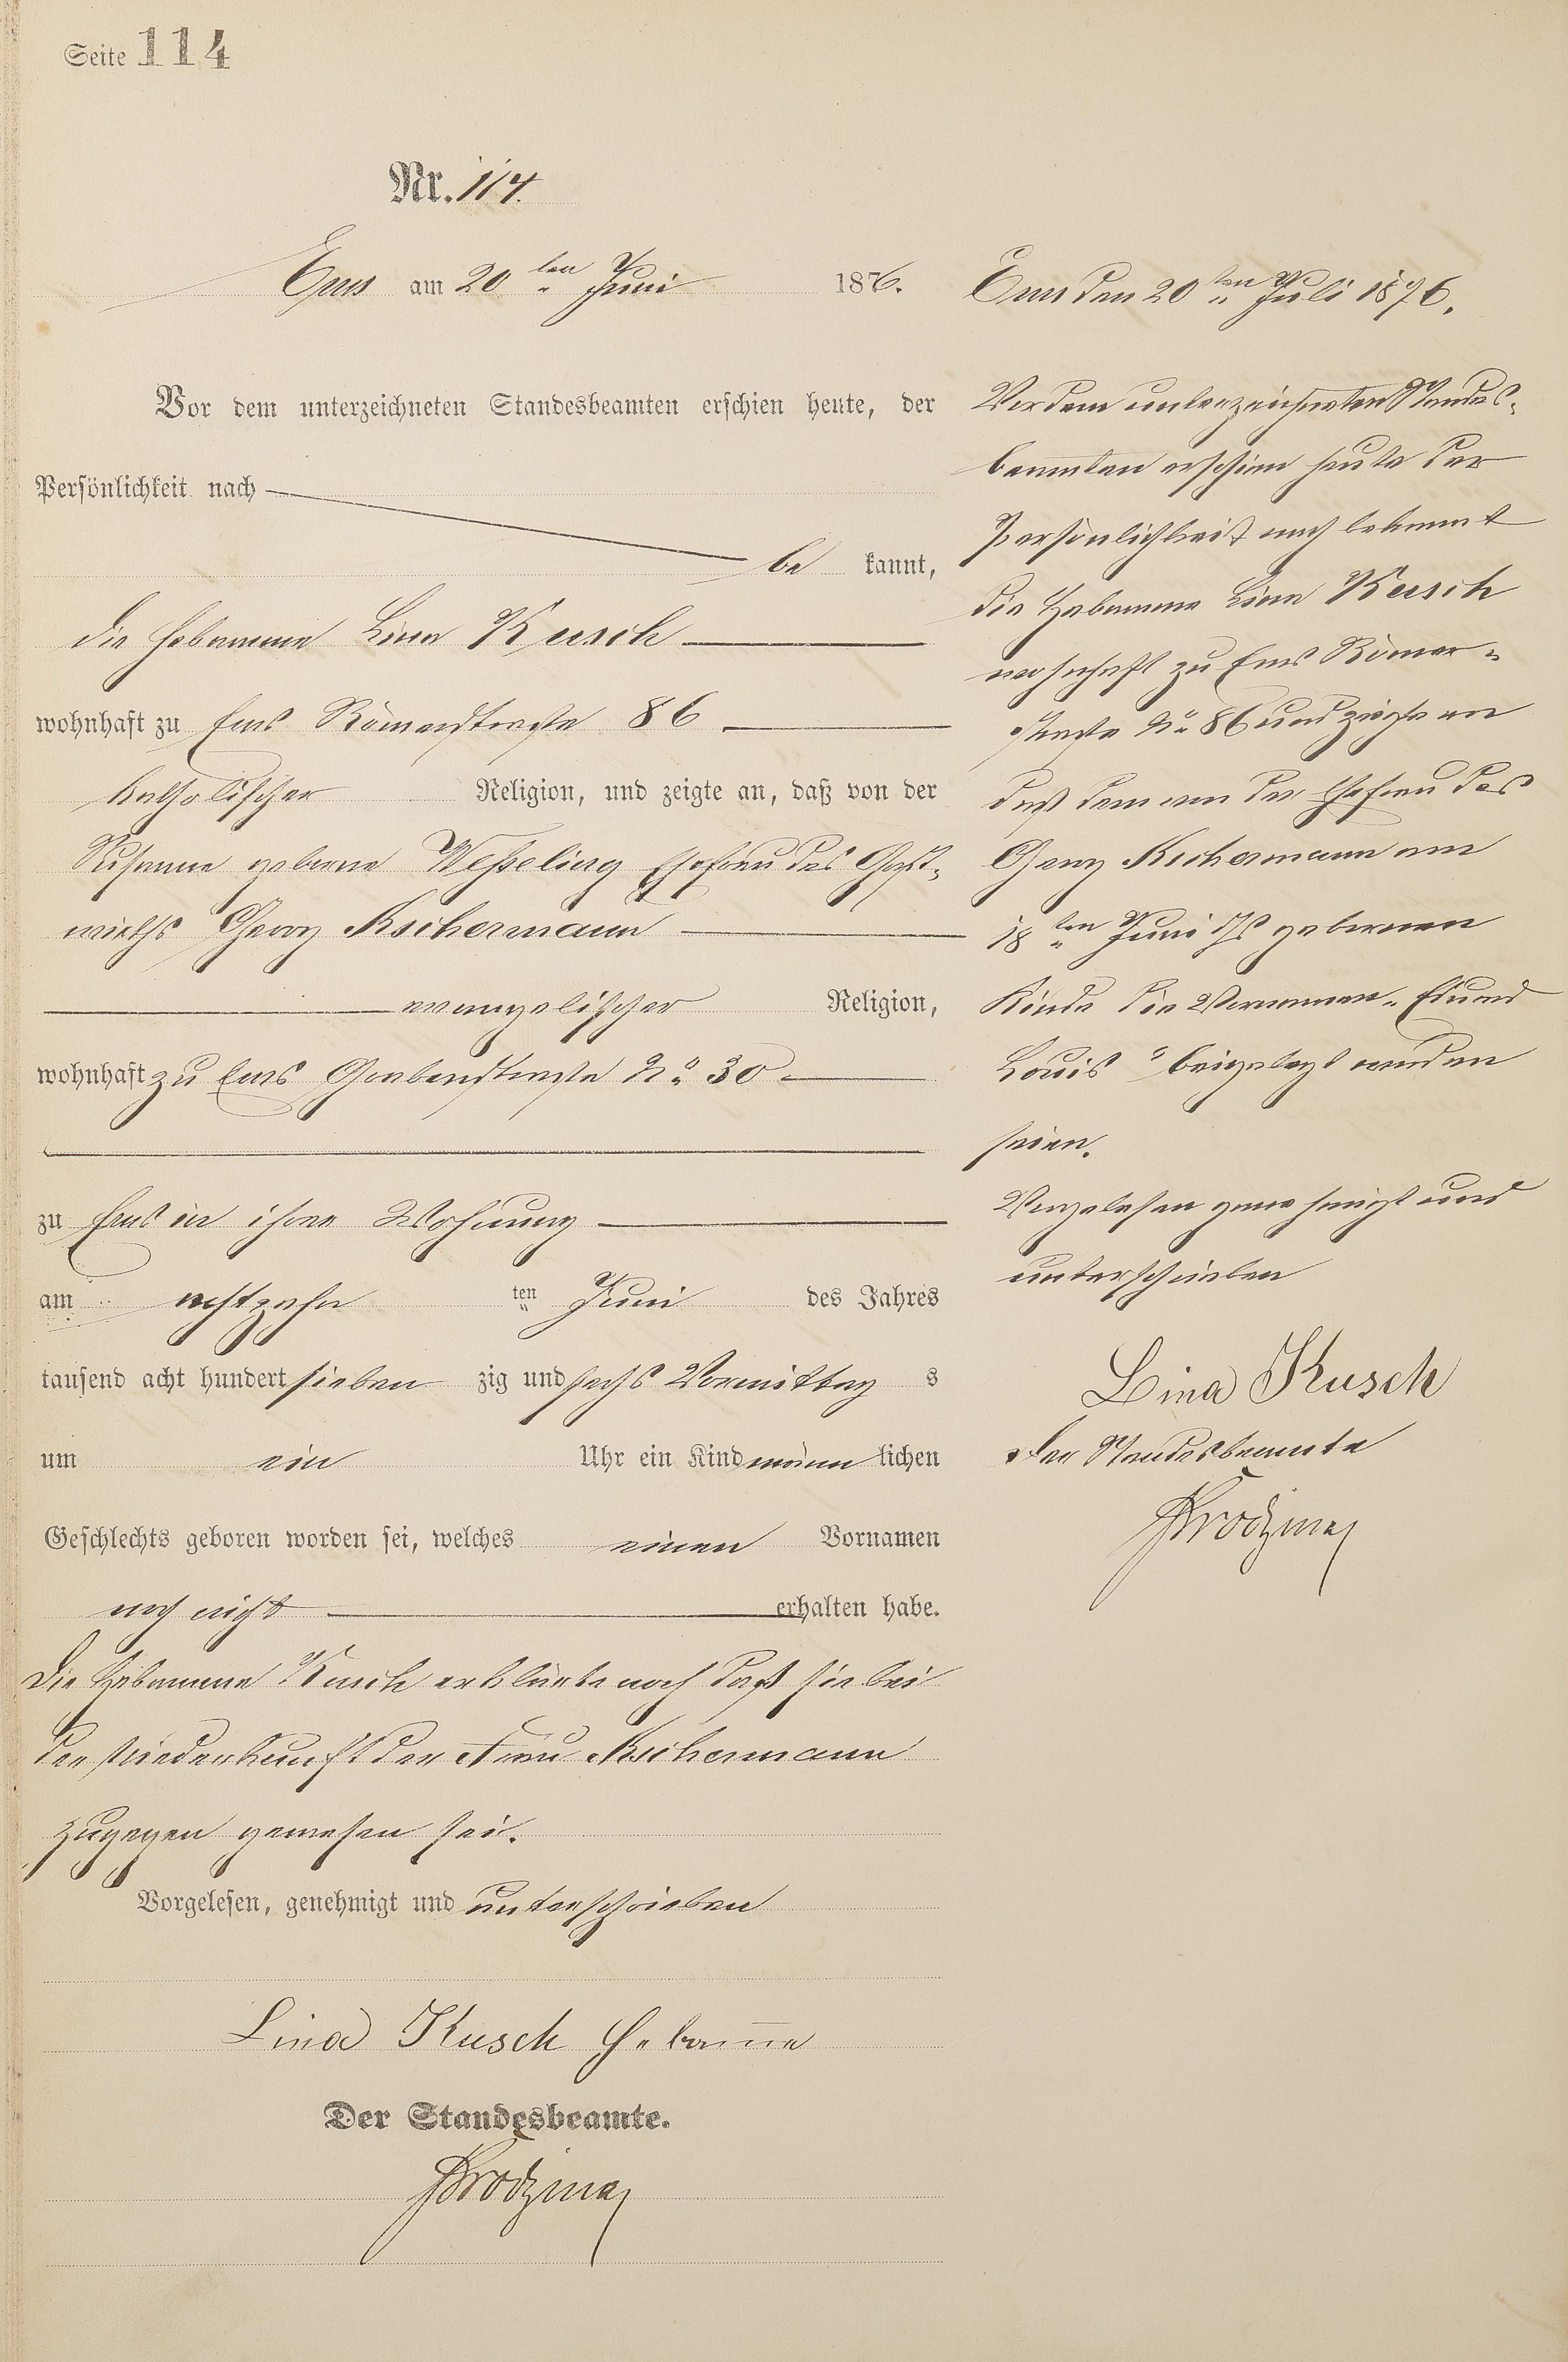 Seite 114
Nr. 114.
Ems am 20ten Juni 1876.
Vor dem unterzeichneten Standesbeamten erschien heute, der
Persönlichkeit nach
be kannt,
die Hebamme Lina Kusch
wohnhaft zu Ems Römerstraße 86
katholischer Religion, und zeigte an, daß von der
Susanna geborne Weßeling Ehefrau des Gast-
wirths Georg
evangelischer Religion,
wohnhaft zu Ems Grabenstraße No 30
zu Ems in ihrer Wohnung
am achtzehn ten Juni des Jahres
tausend acht hundert sieben zig und sechs Vormittag s
um ein Uhr ein Kind männ lichen
Geschlechts geboren worden sei, welches einen Vornamen
noch nicht erhalten habe.
Die Hebamme Kusch erklärte noch daß sie bei
der Niederkunft der Frau
zugegen gewesen sei.
Vorgelesen, genehmigt und unterschrieben
Lina Kusch Hebamme
Der Standesbeamte.
Ems den 20ten Juli 1876.
Vor dem unterzeichneten Standes-
beamten erschien heute der
Persönlichkeit nach bekannt
die Hebamme Lina Kusch
wohnhaft zu Ems Römer-
straße No 86 und zeigte an
daß dem von der Ehefrau des
Georg am
18ten Juni geborenen
Kinde die Vornamen „Edmund
Louis“ beigelegt worden
seien.
Vorgelesen genehmigt und
unterschrieben
Lina Kusch
Der Standesbeamte